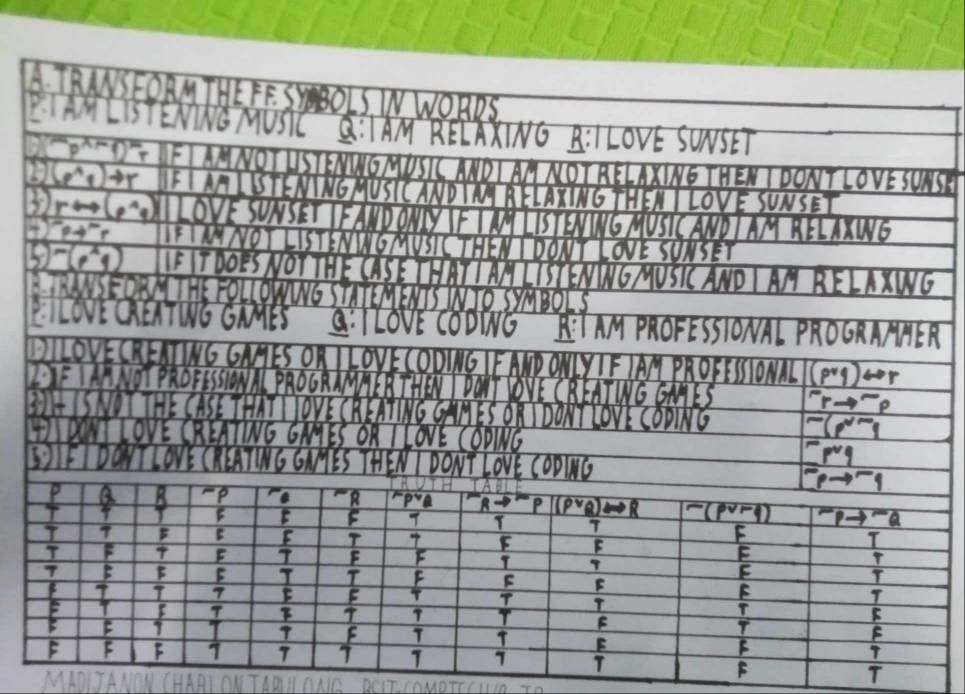 A. TRANSFORM THE FF. SYMBOLS IN WORDS
P: I AM LISTENING MUSIC Q: I AM RELAXING R: I LOVE SUNSET
1.) (¬p^¬q)¬r IF I AM NOT LISTENING MUSIC AND I AM NOT RELAXING THEN I DONT LOVE SUNSET
2) (p^q)→r IF I AM LISTENING MUSIC AND I AM RELAXING THEN I LOVE SUNSET
3) r↔(p^q) I LOVE SUNSET IF AND ONLY IF I AM LISTENING MUSIC AND I AM RELAXING
4) ¬p→¬r IF I AM NOT LISTENING MUSIC THEN I DONT LOVE SUNSET
5) ¬(p^q) IF IT DOES NOT THE CASE THAT I AM LISTENING MUSIC AND I AM RELAXING
B. TRANSFORM THE FOLLOWING STATEMENTS INTO SYMBOLS
P: I LOVE CREATING GAMES Q: I LOVE CODING R: I AM PROFESSIONAL PROGRAMMER
1.) I LOVE CREATING GAMES OR I LOVE CODING IF AND ONLY IF IAM PROFESSIONAL (pvq)↔r
2.) IF I AM NOT PROFESSIONAL PROGRAMMER THEN I DONT LOVE CREATING GAMES ¬r→¬p
3) IT IS NOT THE CASE THAT I LOVE CREATING GAMES OR I DONT LOVE CODING ¬(pv¬q
4) I DONT LOVE CREATING GAMES OR I LOVE CODING ¬pvq
5) IF I DONT LOVE CREATING GAMES THEN I DONT LOVE CODING ¬p→¬q
TRUTH TABLE
P Q R ¬P ¬Q ¬R ¬PvQ ¬R→¬P (PvQ)↔R ¬(Pv¬q) ¬P→¬Q
T T T F F F T T T F T
T T F F F T T F F F T
T F T F T F F T T F T
T F F F T T F F F F T
F T T T F F T T T T F
F T F T F T T T F T F
F F T T T F T T F F T
F F F T T T T T T F T